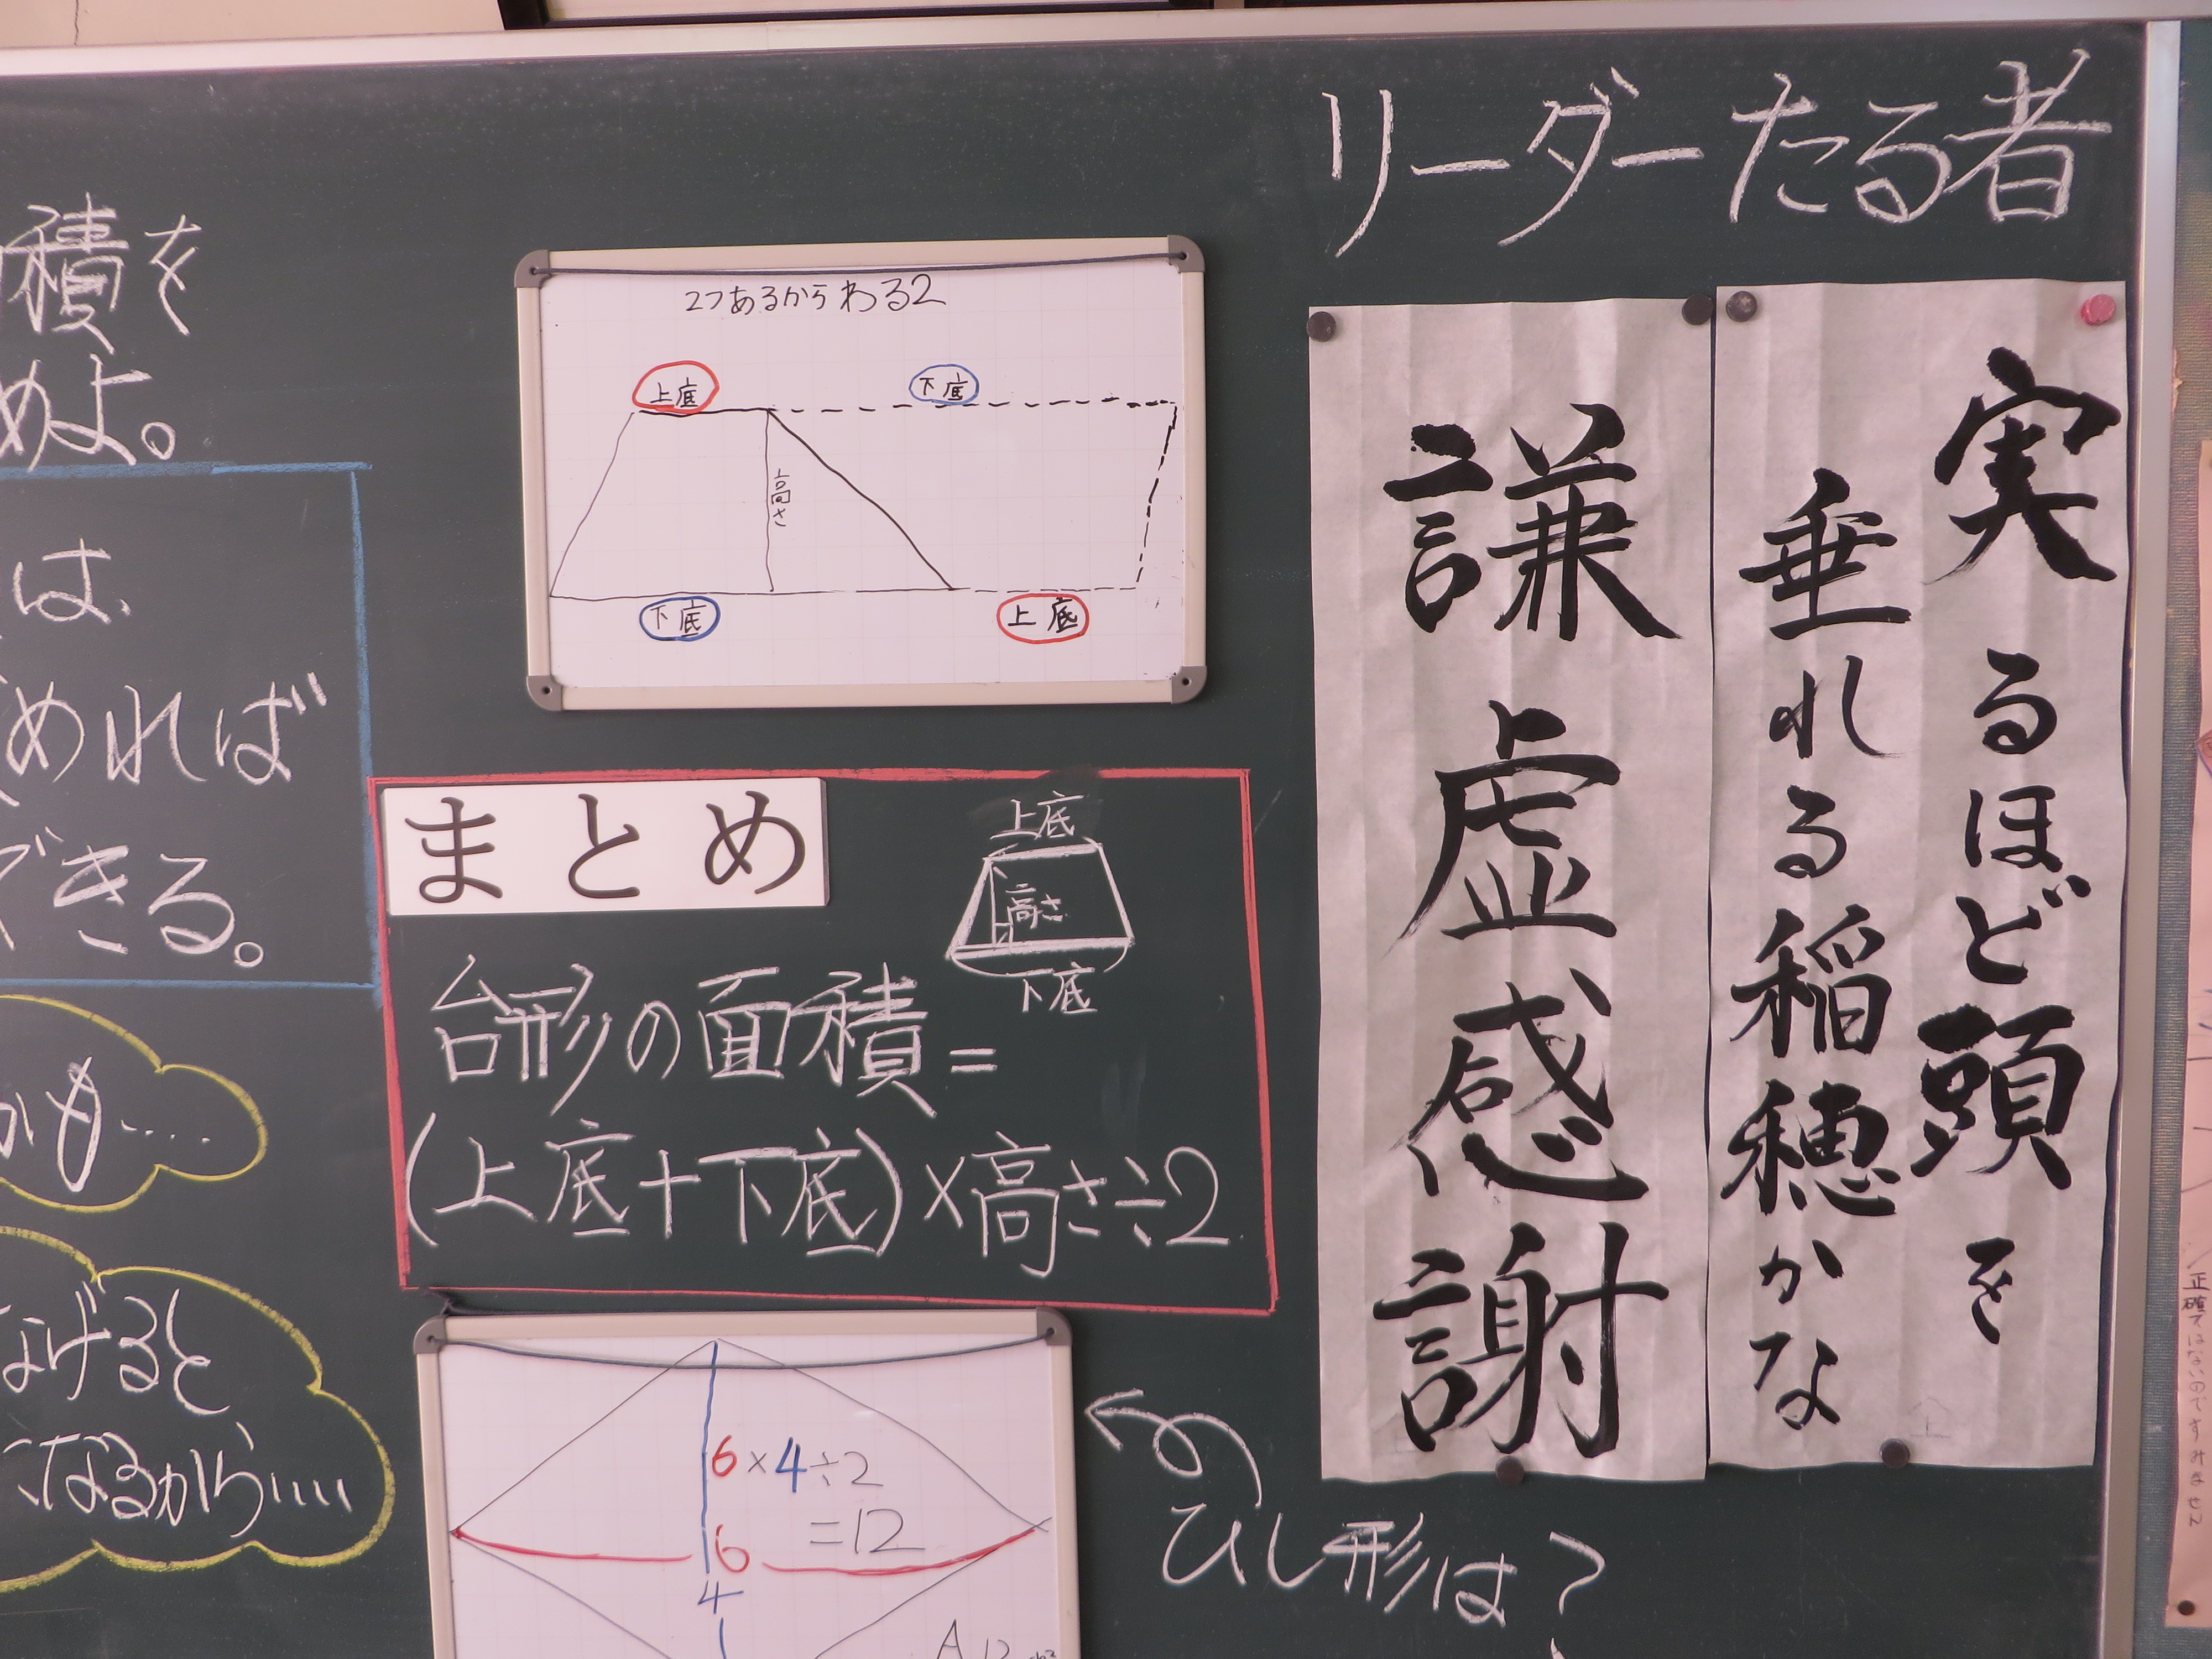 積を
めよ。
は、
めれば
できる。
かも‥‥
なげると
になるから‥‥
2つあるからわる2
上底
下底
高さ
下底
上底
まとめ
上底
高さ
下底
台形の面積=
(上底+下底)×高さ÷2
6×4÷2
=12
6
4
A 12
ひし形は?
リーダーたる者
実るほど頭を
垂れる稲穂かな
謙虚感謝
正確ではないのですみません